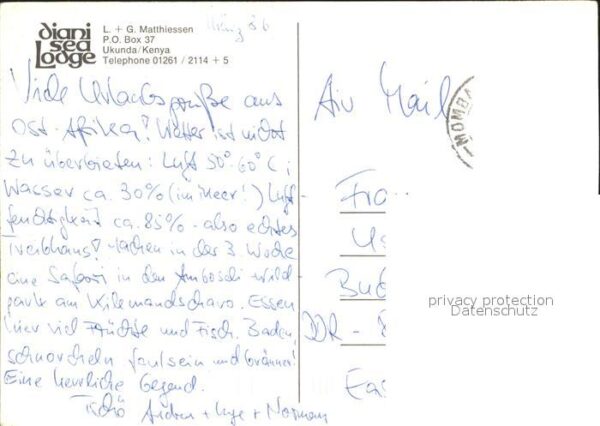 diani
sea
Lodge
L. + G. Matthiessen
P.O. Box 37
Ukunda/Kenya
Telephone 01261 / 2114 + 5
März 86
Viele Urlaubsgrüße aus
Ost-Afrika! Wetter ist nicht
zu überbieten: Luft 50°-60°C;
Wasser ca. 30% (im Meer!) Luft-
feuchtigkeit ca. 85% - also echtes
Treibhaus! Machen in der 3. Woche
eine Safari in den Amboseli wild
park am Kilemandscharo. Essen
hier viel Früchte und Fisch. Baden,
schnorcheln faulsein und bräunen!
Eine herrliche Gegend.
Tschö + Inge + Norman
Air Mail
MOMBA
Fra
Us
Bud
DDR -
Eas
privacy protection
Datenschutz